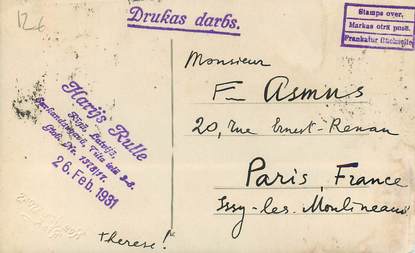 12
Drukas darbs.
Stamps over,
Markas otrā pusē,
Frankatur Rückseite
Monsieur
F— Asmus
20, rue Ernest-Renan
Paris, France
Issy-les-Moulineaux
Harijs Rulle
Rīgā, Latvijā,
26. Feb. 1931
therese!